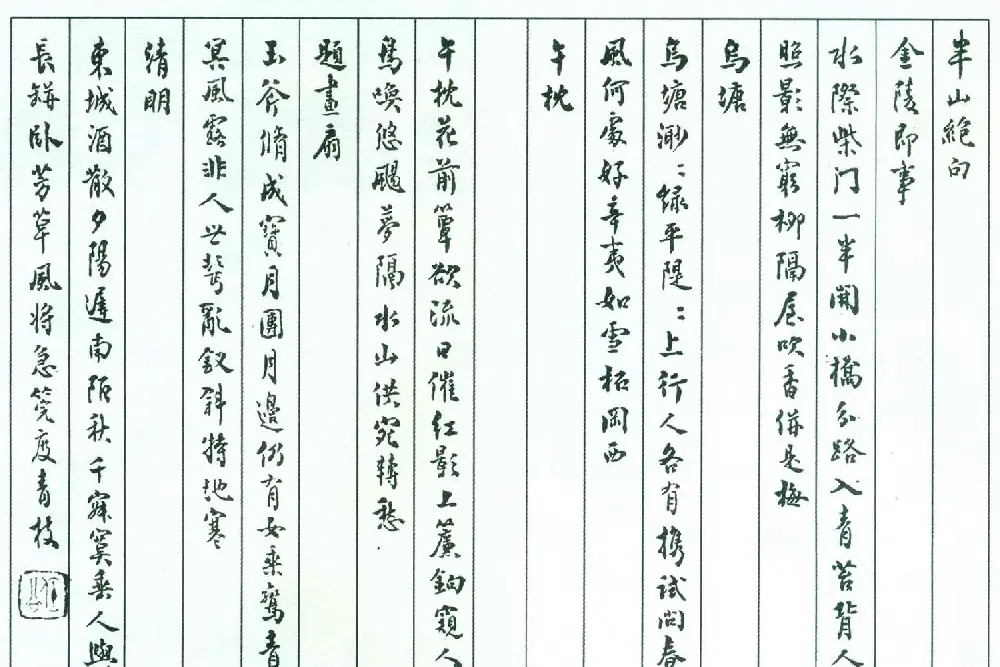 半山絕句
金陵即事
水際柴门一半開小橋分路入青苔背人
照影無窮柳隔屋吹香併是梅
烏塘
烏塘渺〻緑平隄〻上行人各有携试问春
風何處好辛夷如雪柘岡西
午枕
午枕花前簟欲流日催红影上簾鉤窺人
鳥喚悠颺夢隔水山供宛轉愁
題畫扇
玉斧脩成寶月團月邊仍有女乘鸞青
冥風露非人世鬢亂釵斜特地寒
清明
東城酒散夕陽遲南陌秋千寂寞垂人與
長缾卧芳草風將急筦度青枝